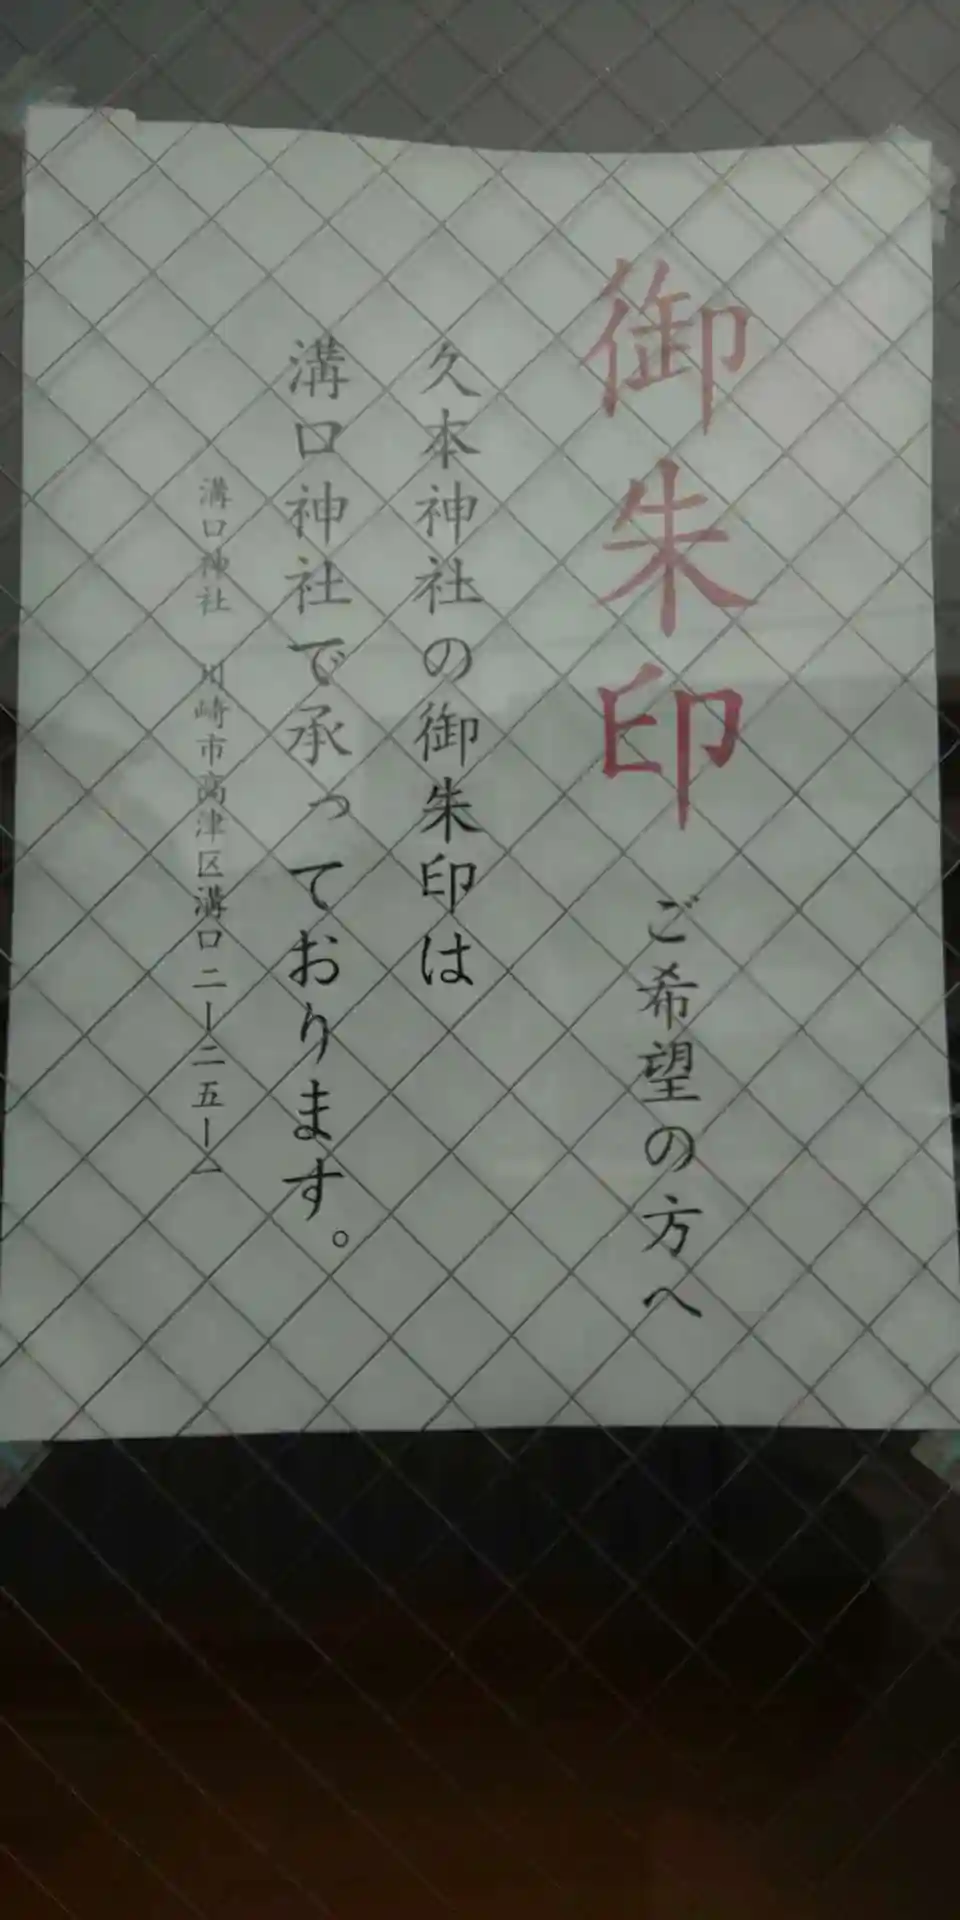 御朱印ご希望の方へ
久本神社の御朱印は
溝口神社で承っております。
溝口神社 川崎市高津区溝口二ー二五ー一